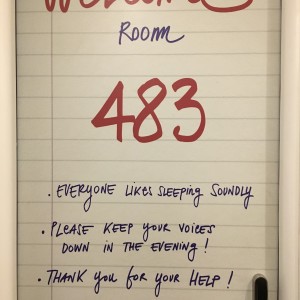 Welcome
Room
483
· Everyone likes sleeping soundly
· Please keep your voices
down in the evening!
· Thank you for your help!